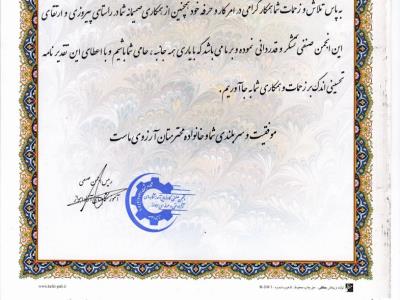 به پاس تلاش و زحمات شما همکار گرامی در امر کار و حرفه خود همچنین از همکاری صمیمانه شما در راستای پیروزی و ارتقای
این انجمن صنفی تشکر و قدردانی نموده و بر ما می باشد که با یاری همه جانبه ، حامی شما باشیم و با اعطای این تقدیر نامه
تحسینی اندک بر زحمات و همکاری شما به جا آوریم .
موفقیت و سربلندی شما و خانواده محترمتان آرزوی ماست
رئیس انجمن صنفی